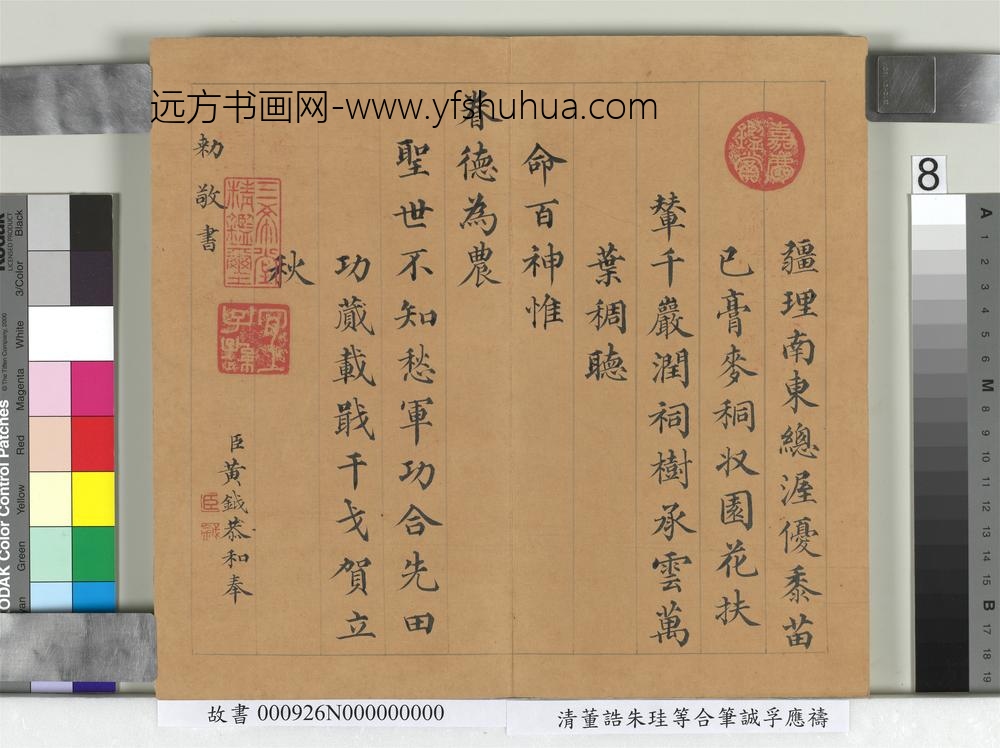 远方书画网-www.yfshuhua.com
疆理南東總渥優黍苗
已膏麥秱收園花扶
輦千巖潤祠樹承雲萬
葉稠聽
命百神惟
眷德為農
聖世不知愁軍功合先田
功蕆載戢干戈賀立
秋
臣黃鉞恭和奉
勅敬書
嘉慶鑑賞
三希堂精鑑璽
宜子孫
臣鉞
8
故書 000926N000000000
清董誥朱珪等合筆誠孚應禱
KODAK Color Control Patches
Kodak
LICENSED PRODUCT
© The Tiffen Company, 2000
Black
3/Color
White
Magenta
Red
Yellow
Green
A 1 2 3 4 5 6 M 8 9 10 11 12 13 14 15 B 17 18 19